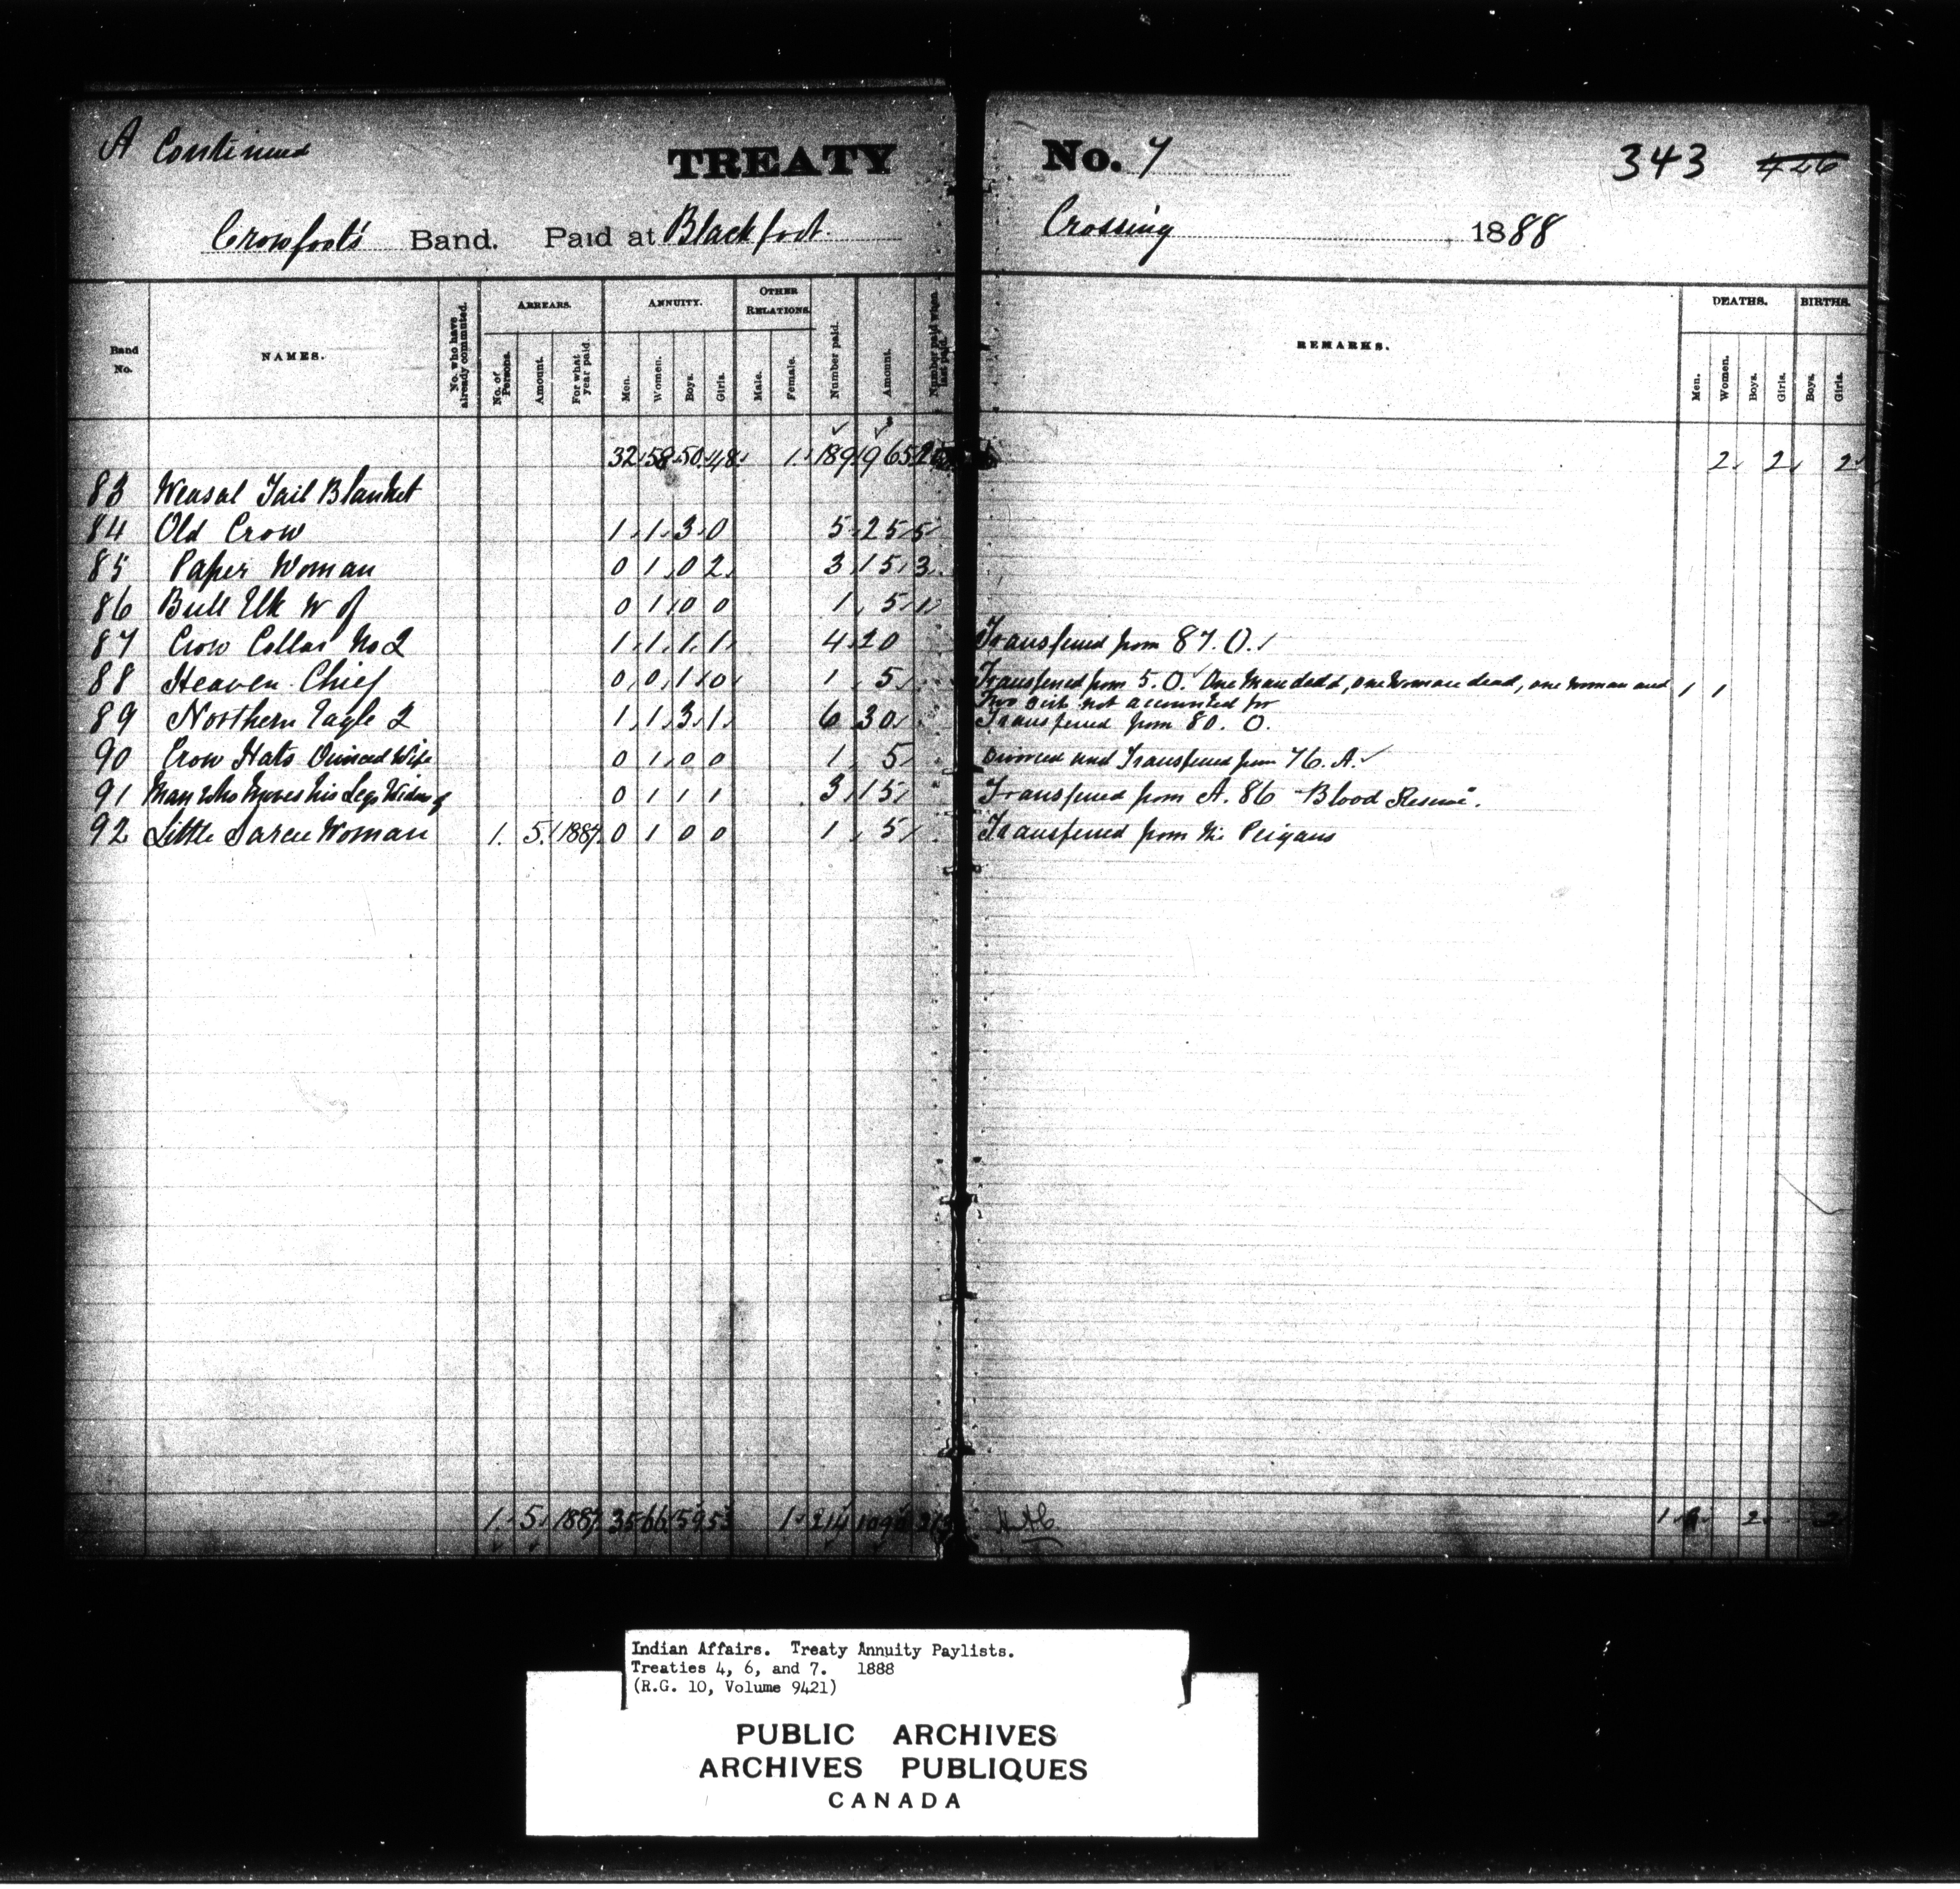 A Continued TREATY No. 7 343 426
Crowfoot's Band. Paid at Blackfoot Crossing 1888
Band No. NAMES. No. who have already commuted. ARREARS. No. of Persons. Amount. For what year paid. ANNUITY. Men. Women. Boys. Girls. OTHER RELATIONS. Male. Female. Number paid. Amount. Number paid when last paid. REMARKS. DEATHS. Men. Women. Boys. Girls. BIRTHS. Boys. Girls.
32 58 50 48 1 189 965 2 2 2
83 Weasal Tail Blanket
84 Old Crow 1 1 3 0 5 25 5
85 Paper Woman 0 1 0 2 3 15 3
86 Bull Elk W of 0 1 0 0 1 5 1
87 Crow Collar No 2 1 1 1 1 4 20 Transferred from 87. O.
88 Heaven Chief 0 0 1 0 1 5 Transferred from 5. O. One Man dead, one Woman dead, one woman and 1 1
Two Girls not accounted for
89 Northern Eagle 2 1 1 3 1 6 30 Transferred from 80. O.
90 Crow Hats Divorced Wife 0 1 0 0 1 5 Divorced and Transferred from 76. A.
91 Man Who Moves his Legs Widow of 0 1 1 1 3 15 Transferred from A. 86 Blood Reserve.
92 Little Sarcee Woman 1 5 1887 0 1 0 0 1 5 Transferred from the Peigans
1 5 1887 35 66 59 53 1 214 1 2
Indian Affairs. Treaty Annuity Paylists.
Treaties 4, 6, and 7. 1888
(R.G. 10, Volume 9421)
PUBLIC ARCHIVES
ARCHIVES PUBLIQUES
CANADA